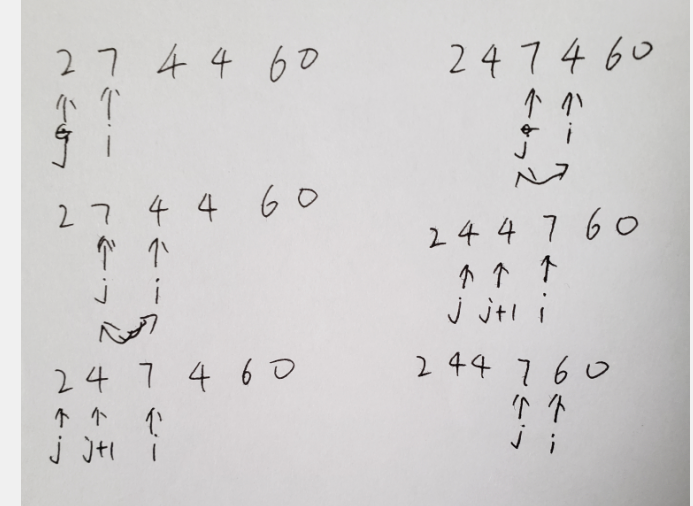 2 7 4 4 6 0
j i
2 7 4 4 6 0
j i
2 4 7 4 6 0
j j+1 i
2 4 7 4 6 0
j i
2 4 4 7 6 0
j j+1 i
2 4 4 7 6 0
j i